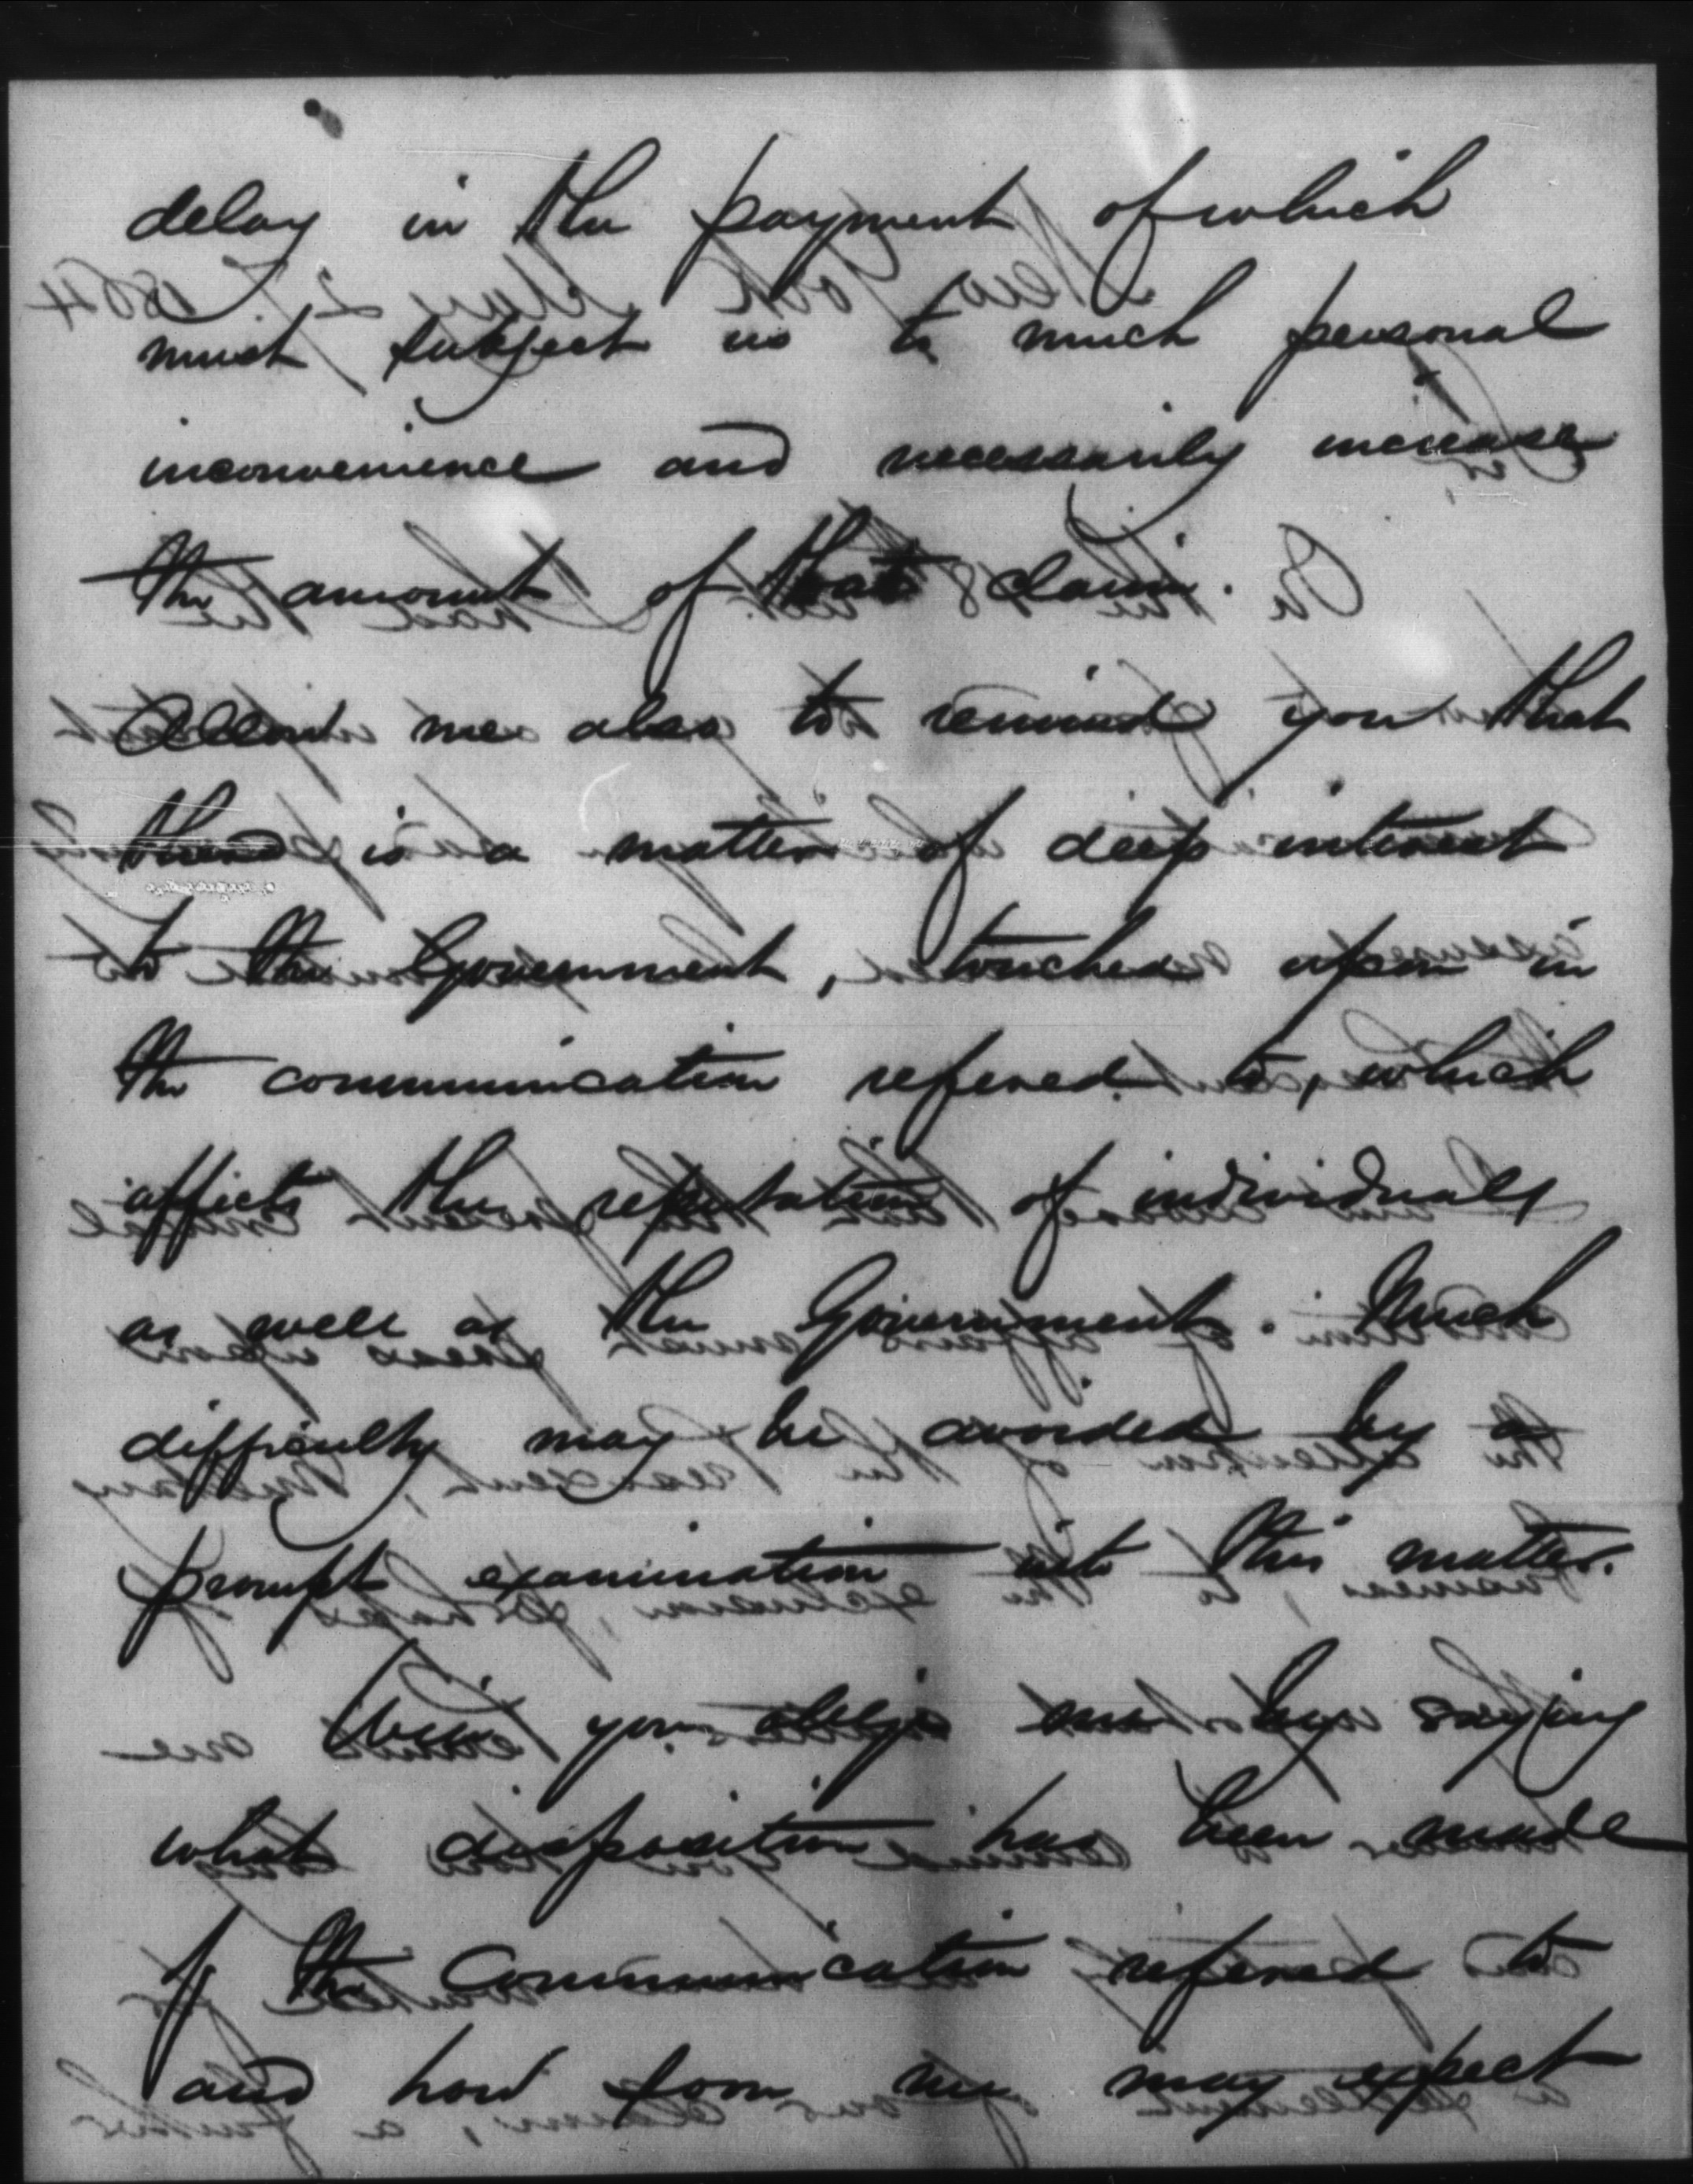 delay in the payment of which
must subject us to much personal
inconvenience and necessarily increase
the amount of that claim.
Allow me also to remind you that
there is a matter of deep interest
to the Government, touched upon in
the communication refered to, which
affects the reputation of individuals
as well as the Government. Much
difficulty may be avoided by a
prompt examination into this matter.
Will you oblige me by saying
what disposition has been made
of the Communication refered to
and how soon we may expect